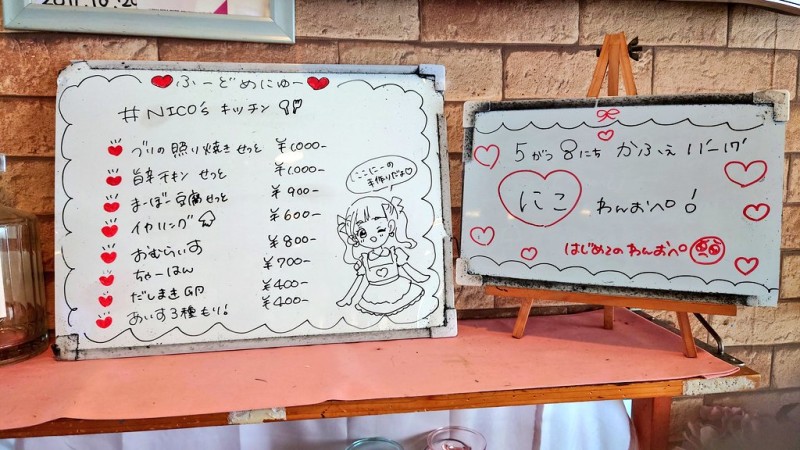 2011.10.20
ふーどめにゅー
#NICO's キッチン
ブリの照り焼きせっと ¥1,000-
旨辛チキンせっと ¥1,000-
まーぼー豆腐せっと ¥900-
イカリング ¥600-
おむらいす ¥800-
ちゃーはん ¥700-
だしまき卵 ¥400-
あいす3種もり! ¥400-
にこにこーの
手作りだよ♡
5がつ8にち かふぇ バーグ
にこ わんおぺ!
はじめてのわんおぺ